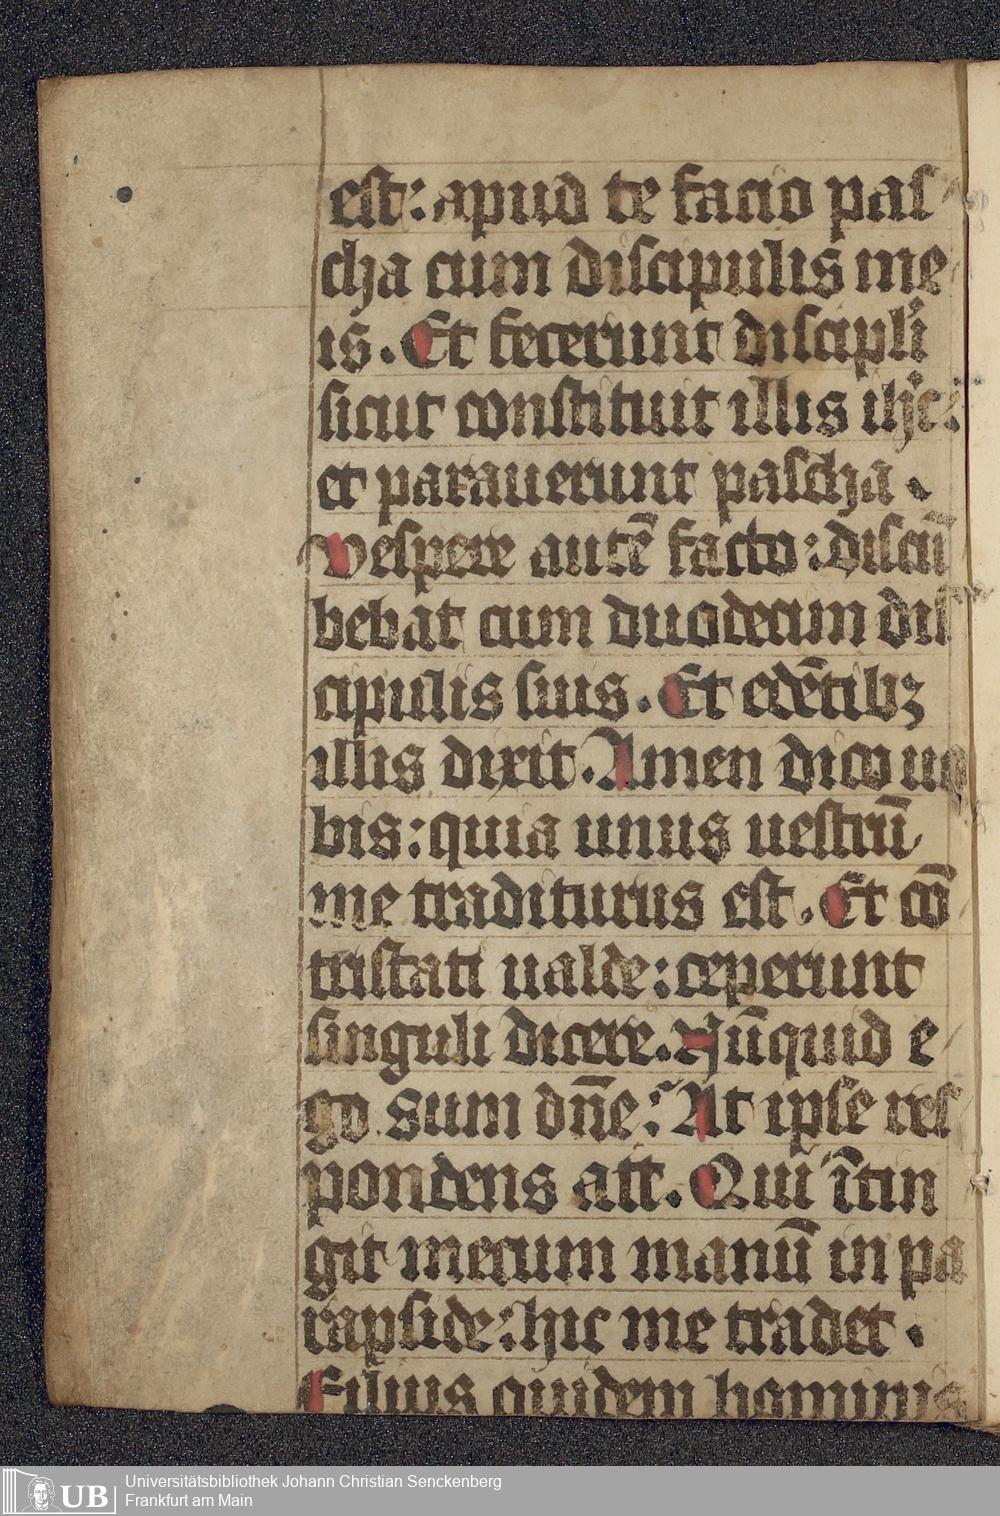 est: apud te facio pas
cha cum discipulis me
is. Et fecerunt discipli
sicut constituit illis ihc:
et parauerunt pascha.
Vespere autē facto: discū
bebat cum duodecim dis
cipulis suis. Et edētibꝫ
illis dixit. Amen dico uo
bis: quia unus uestrū
me traditurus est. Et cō
tristati ualde: ceperunt
singuli dicere. Nūquid e
go sum dn̄e? At ipse res
pondens ait. Qui ītin
git mecum manū in pa
rapside: hic me tradet.
Filius quidem hominis
UB
Universitätsbibliothek Johann Christian Senckenberg
Frankfurt am Main